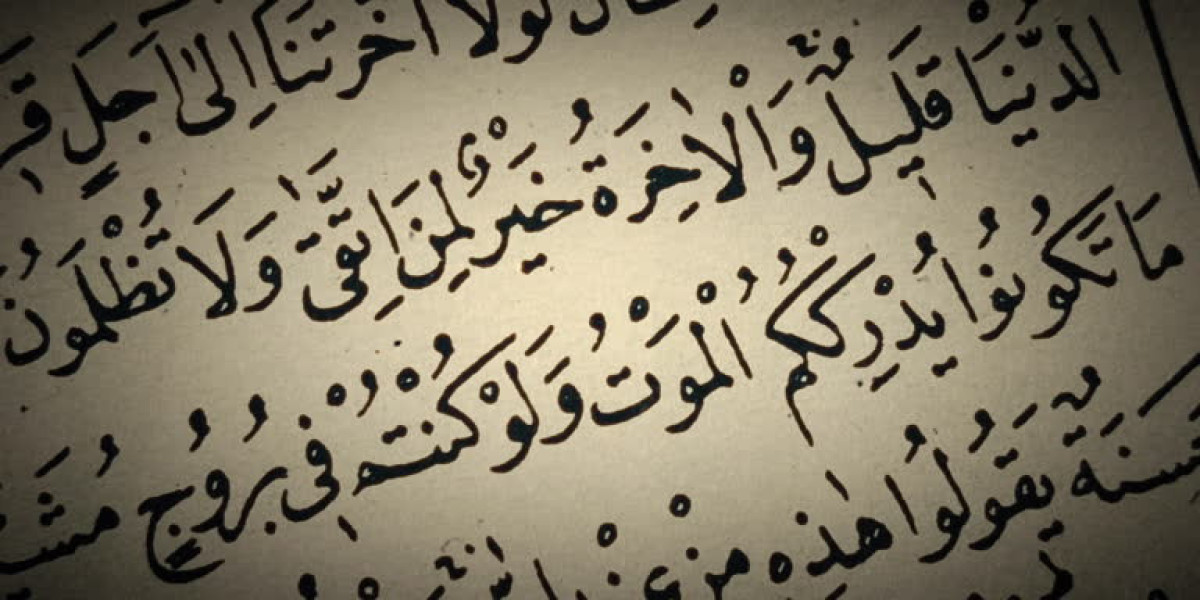 لَوْلَا اَخَّرْتَنَا اِلٰى اَجَلٍ
الدُّنْيَا قَلِيْلٌ وَالْاٰخِرَةُ خَيْرٌ لِمَنِ اتَّقٰى وَلَا تُظْلَمُونَ
مَا تَكُونُوا يُدْرِكْكُمُ الْمَوْتُ وَلَوْ كُنْتُمْ فِى بُرُوجٍ
يَقُولُوا هٰذِهِ مِنْ